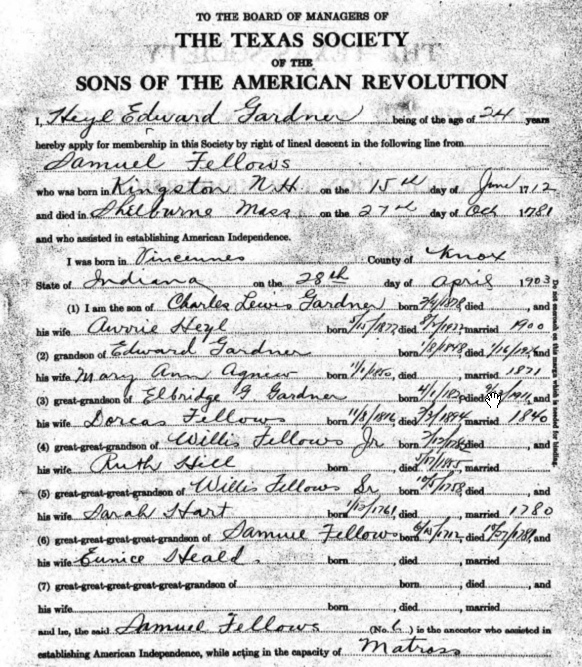 TO THE BOARD OF MANAGERS OF
THE TEXAS SOCIETY
OF THE
SONS OF THE AMERICAN REVOLUTION
I, Heyl Edward Gardner being of the age of 24 years
hereby apply for membership in this Society by right of lineal descent in the following line from
Samuel Fellows
who was born in Kingston N.H. on the 15th day of June 1712
and died in Shelburne Mass on the 27th day of Oct 1781
and who assisted in establishing American Independence.
I was born in Vincennes County of Knox
State of Indiana on the 28th day of April 1903
(1) I am the son of Charles Lewis Gardner born died, and
his wife Heyl born died married 1900
(2) grandson of Edward Gardner born 1/8/1848, died, and
his wife Mary Ann Agnew born, died married 1871
(3) great-grandson of Elbridge G Gardner born died, and
his wife Dorcas Fellows born died married 1840
(4) great-great-grandson of Willis Fellows Jr born died, and
his wife Ruth Hill born, died, married
(5) great-great-great-grandson of Willis Fellows Sr born died, and
his wife Sarah Hart born 1/13/1761, died, married 1780
(6) great-great-great-great-grandson of Samuel Fellows born died, and
his wife Eunice Heald. born, died, married
(7) great-great-great-great-great-grandson of born, died, and
his wife born, died, married
and he, the said Samuel Fellows (No. 6) is the ancestor who assisted in
establishing American Independence, while acting in the capacity of Matross
Do not encroach on this margin which is needed for binding.